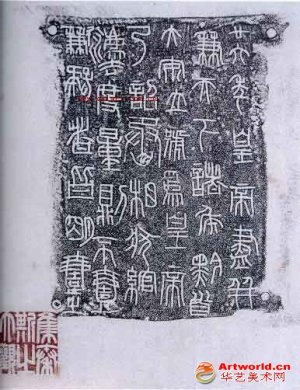 廿六年皇帝盡并
兼天下諸侯黔首
大安立號為皇帝
乃詔丞相狀綰
灋度量則不壹
歉疑者皆明壹之
Artworld.cn
华艺美术网